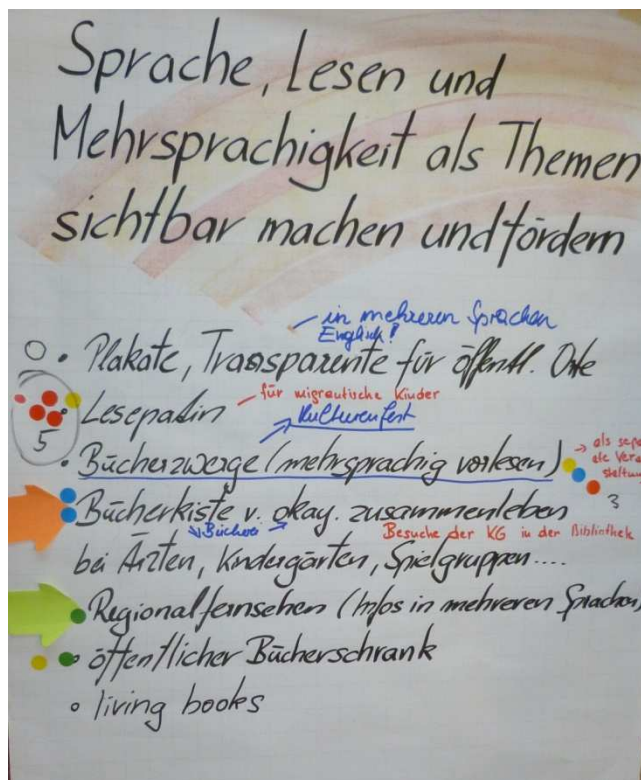 Sprache, Lesen und
Mehrsprachigkeit als Themen
sichtbar machen und fördern
in mehreren Sprachen
Englisch!
• Plakate, Transparente für öffentl. Orte
• Lesepatin
für migrantische Kinder
Kulturenfest
5
• Bücherzwerge (mehrsprachig vorlesen)
als
3
• Bücherkiste v. okay. zusammenleben
Bücherei
Besuche der KG in der Bibliothek
bei Ärzten, Kindergärten, Spielgruppen....
• Regionalfernsehen (Infos in mehreren Sprachen)
• öffentlicher Bücherschrank
• living books